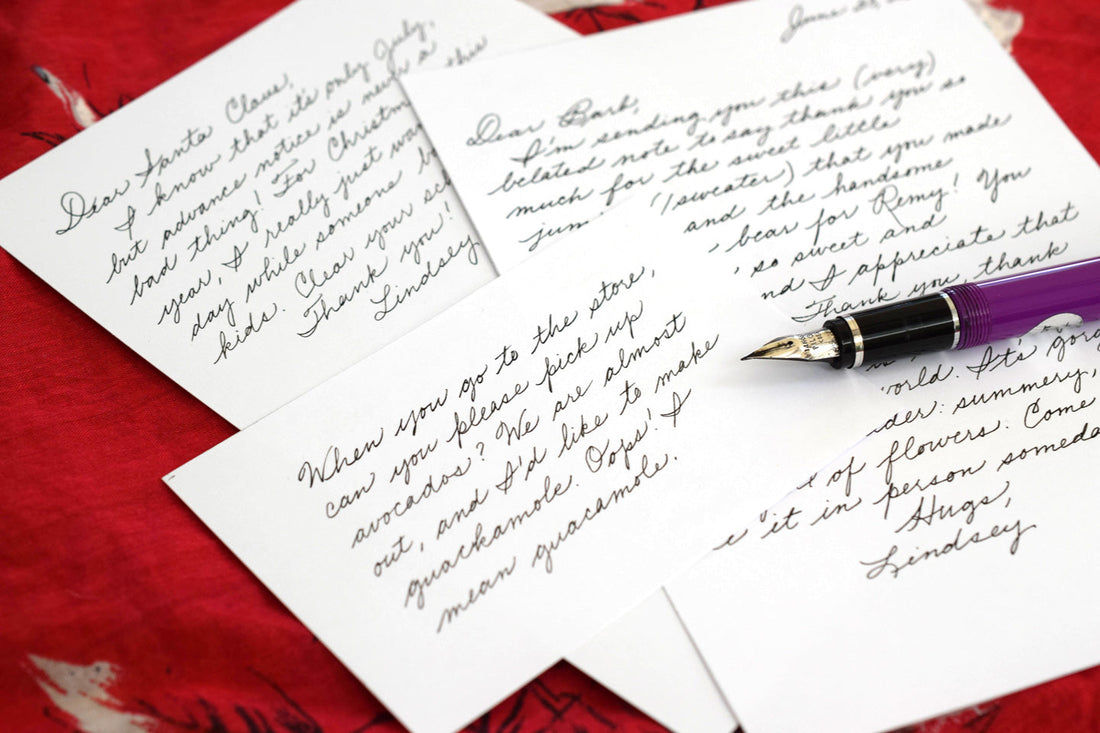 Dear Santa Claus,
I know that it's only July,
but advance notice is never a
bad thing! For Christmas this
year, I really just want
day while someone
kids. Clear your
Thank you!
Lindsey
June
Dear Barb,
I'm sending you this (very)
belated note to say thank you so
much for the sweet little
(sweater) that you made
and the handsome
bear for Remy! You
so sweet and
I appreciate that
Thank you, thank
It's
summery,
of flowers. Come
it in person
Hugs,
Lindsey
When you go to the store,
can you please pick up
avocados? We are almost
out, and I'd like to make
guackamole. Oops! I
mean guacamole.